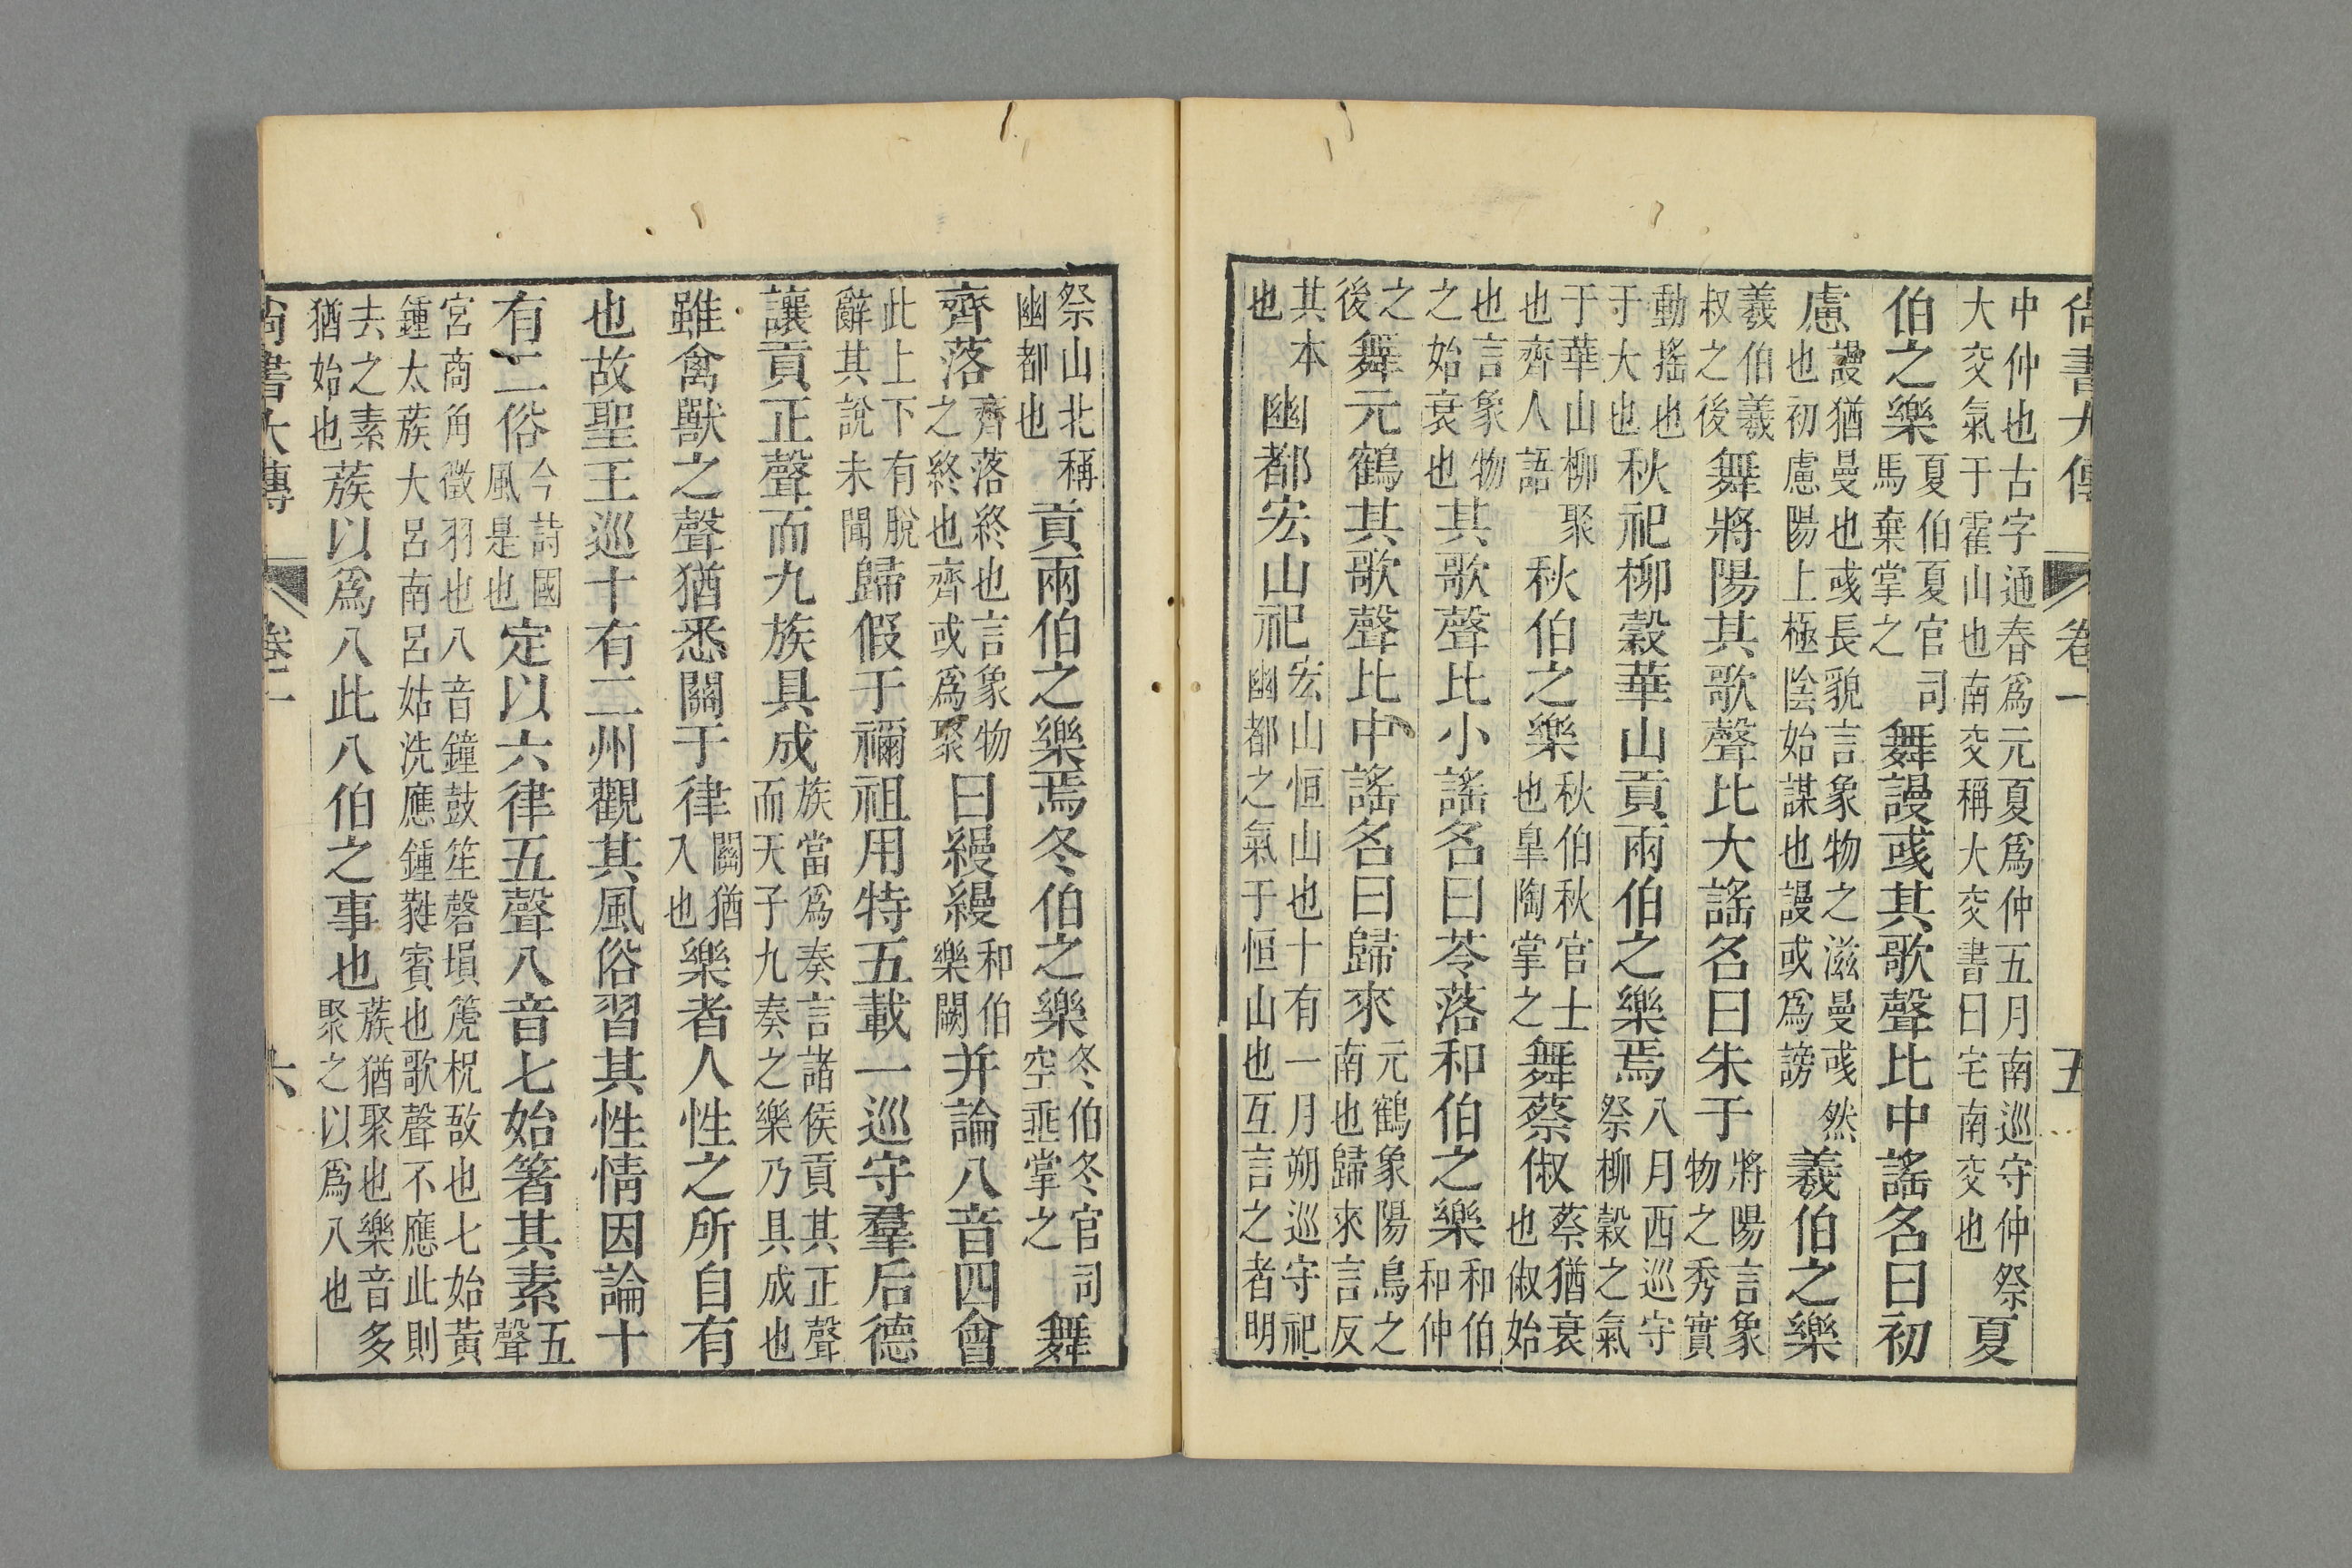 尚書大傳 卷一 五
中仲也古字通春爲元夏爲仲五月南巡守仲祭大交氣于霍山也南交稱大交書曰宅南交也夏
伯之樂夏伯夏官司馬棄掌之舞謾彧其歌聲比中謠名曰初
慮謾猶曼也彧長貌言象物之滋曼彧然也初慮陽上極陰始謀也謾或爲謗羲伯之樂
羲伯羲叔之後舞將陽其歌聲比大謠名曰朱于將陽言象物之秀實
動搖也于大也秋祀柳穀華山貢兩伯之樂焉八月西巡守祭柳穀之氣
于華山柳聚也齊人語秋伯之樂秋伯秋官士也皐陶掌之舞蔡俶蔡猶衰也俶始
也言象物之始衰也其歌聲比小謠名曰苓落和伯之樂和伯和仲
之後舞元鶴其歌聲比中謠名曰歸來元鶴象陽鳥之南也歸來言反
其本也幽都宏山祀宏山恒山也十有一月朔巡守祀幽都之氣于恒山也互言之者明
祭山北稱幽都也貢兩伯之樂焉冬伯之樂冬伯冬官司空垂掌之舞
齊落齊落終也言象物之終也齊或爲聚曰縵縵和伯樂闕并論八音四會
此上下有脫辭其說未聞歸假于禰祖用特五載一巡守羣后德
讓貢正聲而九族具成族當爲奏言諸侯貢其正聲而天子九奏之樂乃具成也
雖禽獸之聲猶悉關于律關猶入也樂者人性之所自有
也故聖王巡十有二州觀其風俗習其性情因論十
有二俗今詩國風是也定以六律五聲八音七始箸其素五聲
宮商角徵羽也八音鐘鼓笙磬塤篪柷敔也七始黃鍾太蔟大呂南呂姑洗應鍾蕤賓也歌聲不應此則
去之素猶始也蔟以爲八此八伯之事也蔟猶聚也樂音多聚之以爲八也
尚書大傳 卷一 六